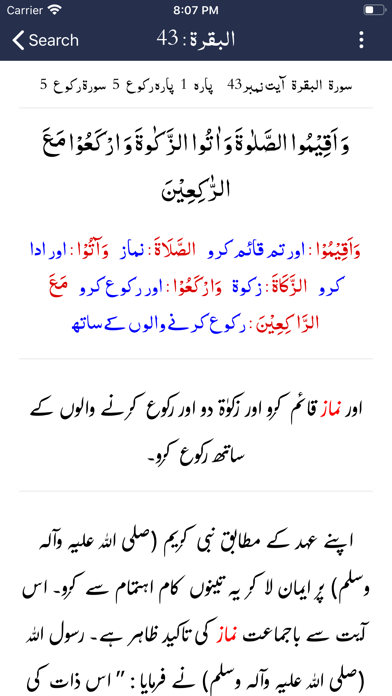 Carrier 8:07 PM
Search البقرة: 43
سورة البقرة آیت نمبر43 پارہ 1 پارہ رکوع 5 سورۃ رکوع 5
وَاَقِیْمُوا الصَّلٰوۃَ وَاٰتُوا الزَّکٰوۃَ وَارْکَعُوْا مَعَ
الرّٰکِعِیْنَ
وَاَقِيْمُوْا : اور تم قائم کرو الصَّلَاةَ : نماز وَآتُوْا : اور ادا
کرو الزَّکَاةَ : زکوۃ وَارْکَعُوْا : اور رکوع کرو مَعَ
الرَّاکِعِیْنَ : رکوع کرنے والوں کے ساتھ
اور نماز قائم کرو اور زکوٰۃ دو اور رکوع کرنے والوں کے
ساتھ رکوع کرو۔
اپنے عہد کے مطابق نبی کریم (صلی اللہ علیہ وآلہ
وسلم) پر ایمان لا کر یہ تینوں کام اہتمام سے کرو۔ اس
آیت سے باجماعت نماز کی تاکید ظاہر ہے۔ رسول اللہ
(صلی اللہ علیہ وآلہ وسلم) نے فرمایا : ” اس ذات کی